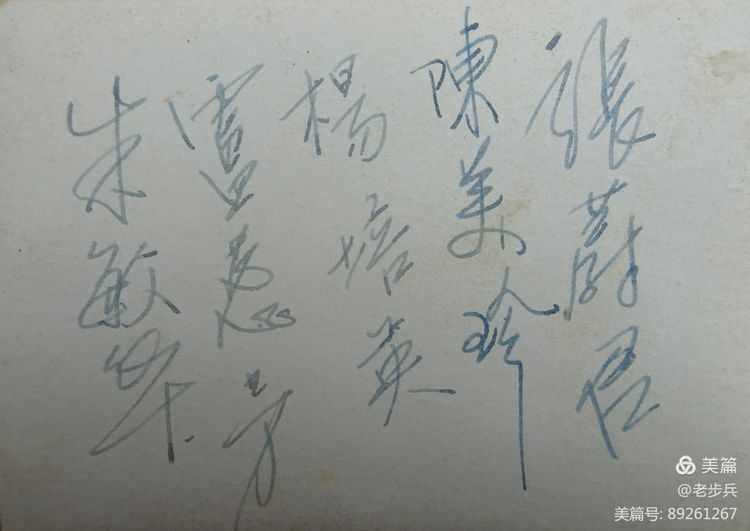 張蔚君
陳美珍
楊培英
雷惠芳
朱敏華
美篇
@老步兵
美篇号: 89261267